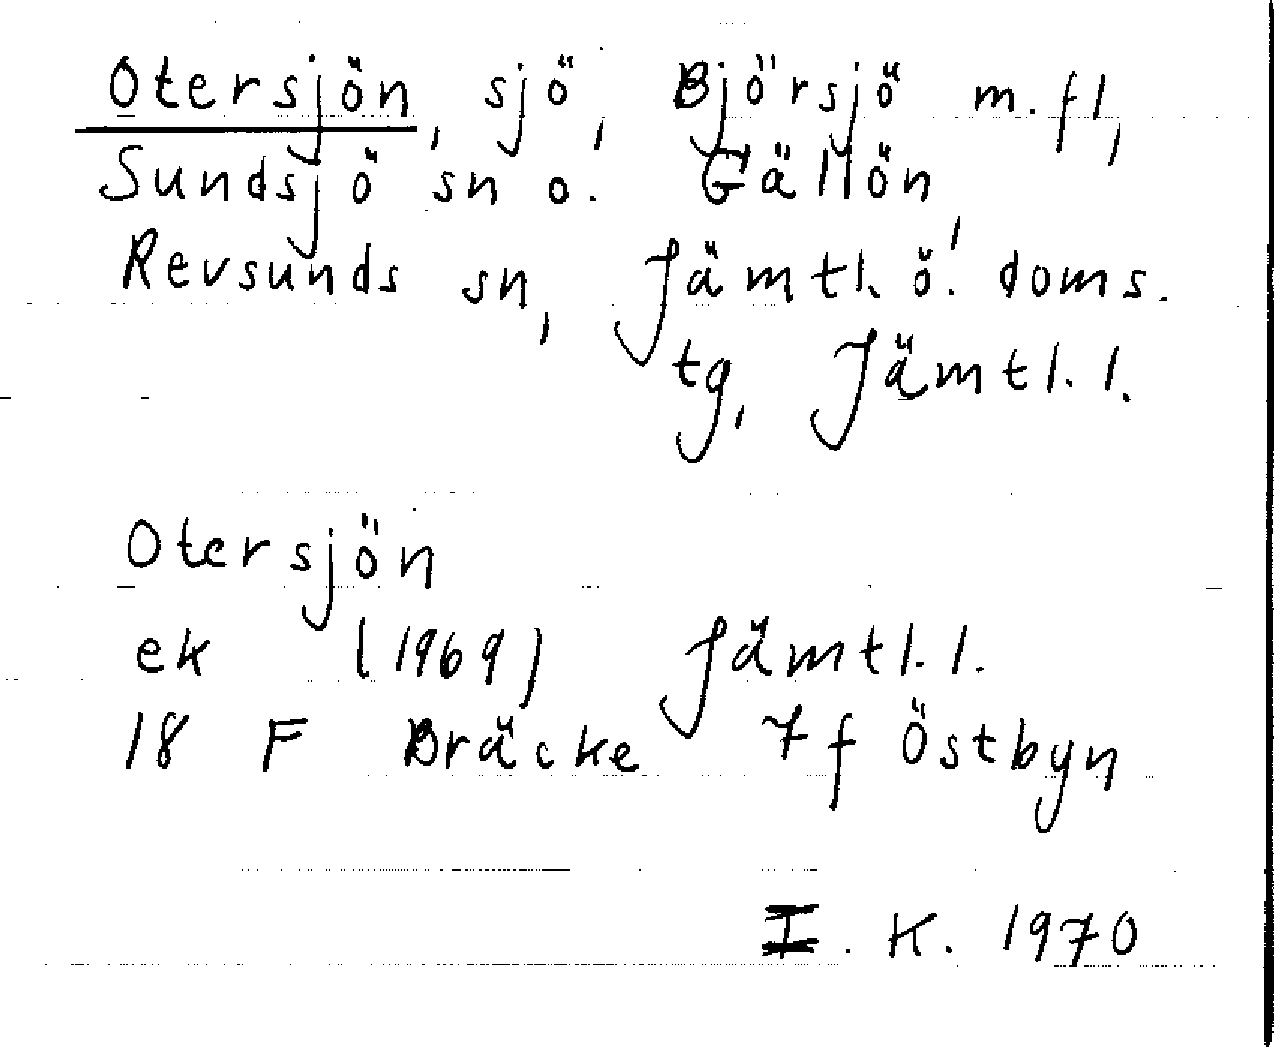 Otersjön, sjö, Björsjö m.fl,
Sundsjö sn o. Gällön,
Revsunds sn, Jämtl. ö. doms.
tg, Jämtl. l.
Otersjön
ek (1969) Jämtl. l.
18 F Bräcke 7f Östbyn
I. K. 1970